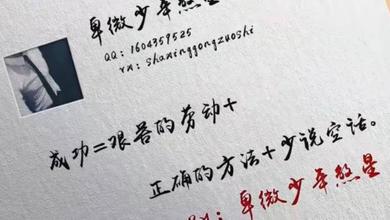 卑微少年煞星
QQ：1604359525
vx：shaxinggongzuoshi
成功=艰苦的劳动+
正确的方法+少说空话。
卑微少年煞星